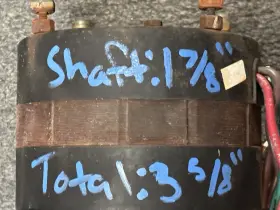 Shaft: 1 7/8"
Total: 3 5/8"